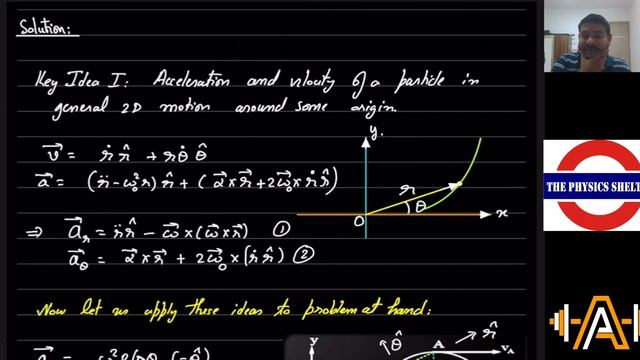 Solution:
Key Idea I: Acceleration and velocity of a particle in
general 2D motion around some origin.
v⃗ = ṙ r̂ + rθ̇ θ̂
a⃗ = (r̈ - ω₀²r) r̂ + (α⃗ × r⃗ + 2ω⃗₀ × ṙ r̂)
⇒ a⃗ᵣ = r̈ r̂ - ω⃗ × (ω⃗ × r⃗) ①
a⃗_θ = α⃗ × r⃗ + 2ω⃗₀ × (ṙ r̂) ②
y.
r
θ
O
x
Now let us apply these ideas to problem at hand:
y
θ̂
A
r̂
v_A
THE PHYSICS SHEL
A